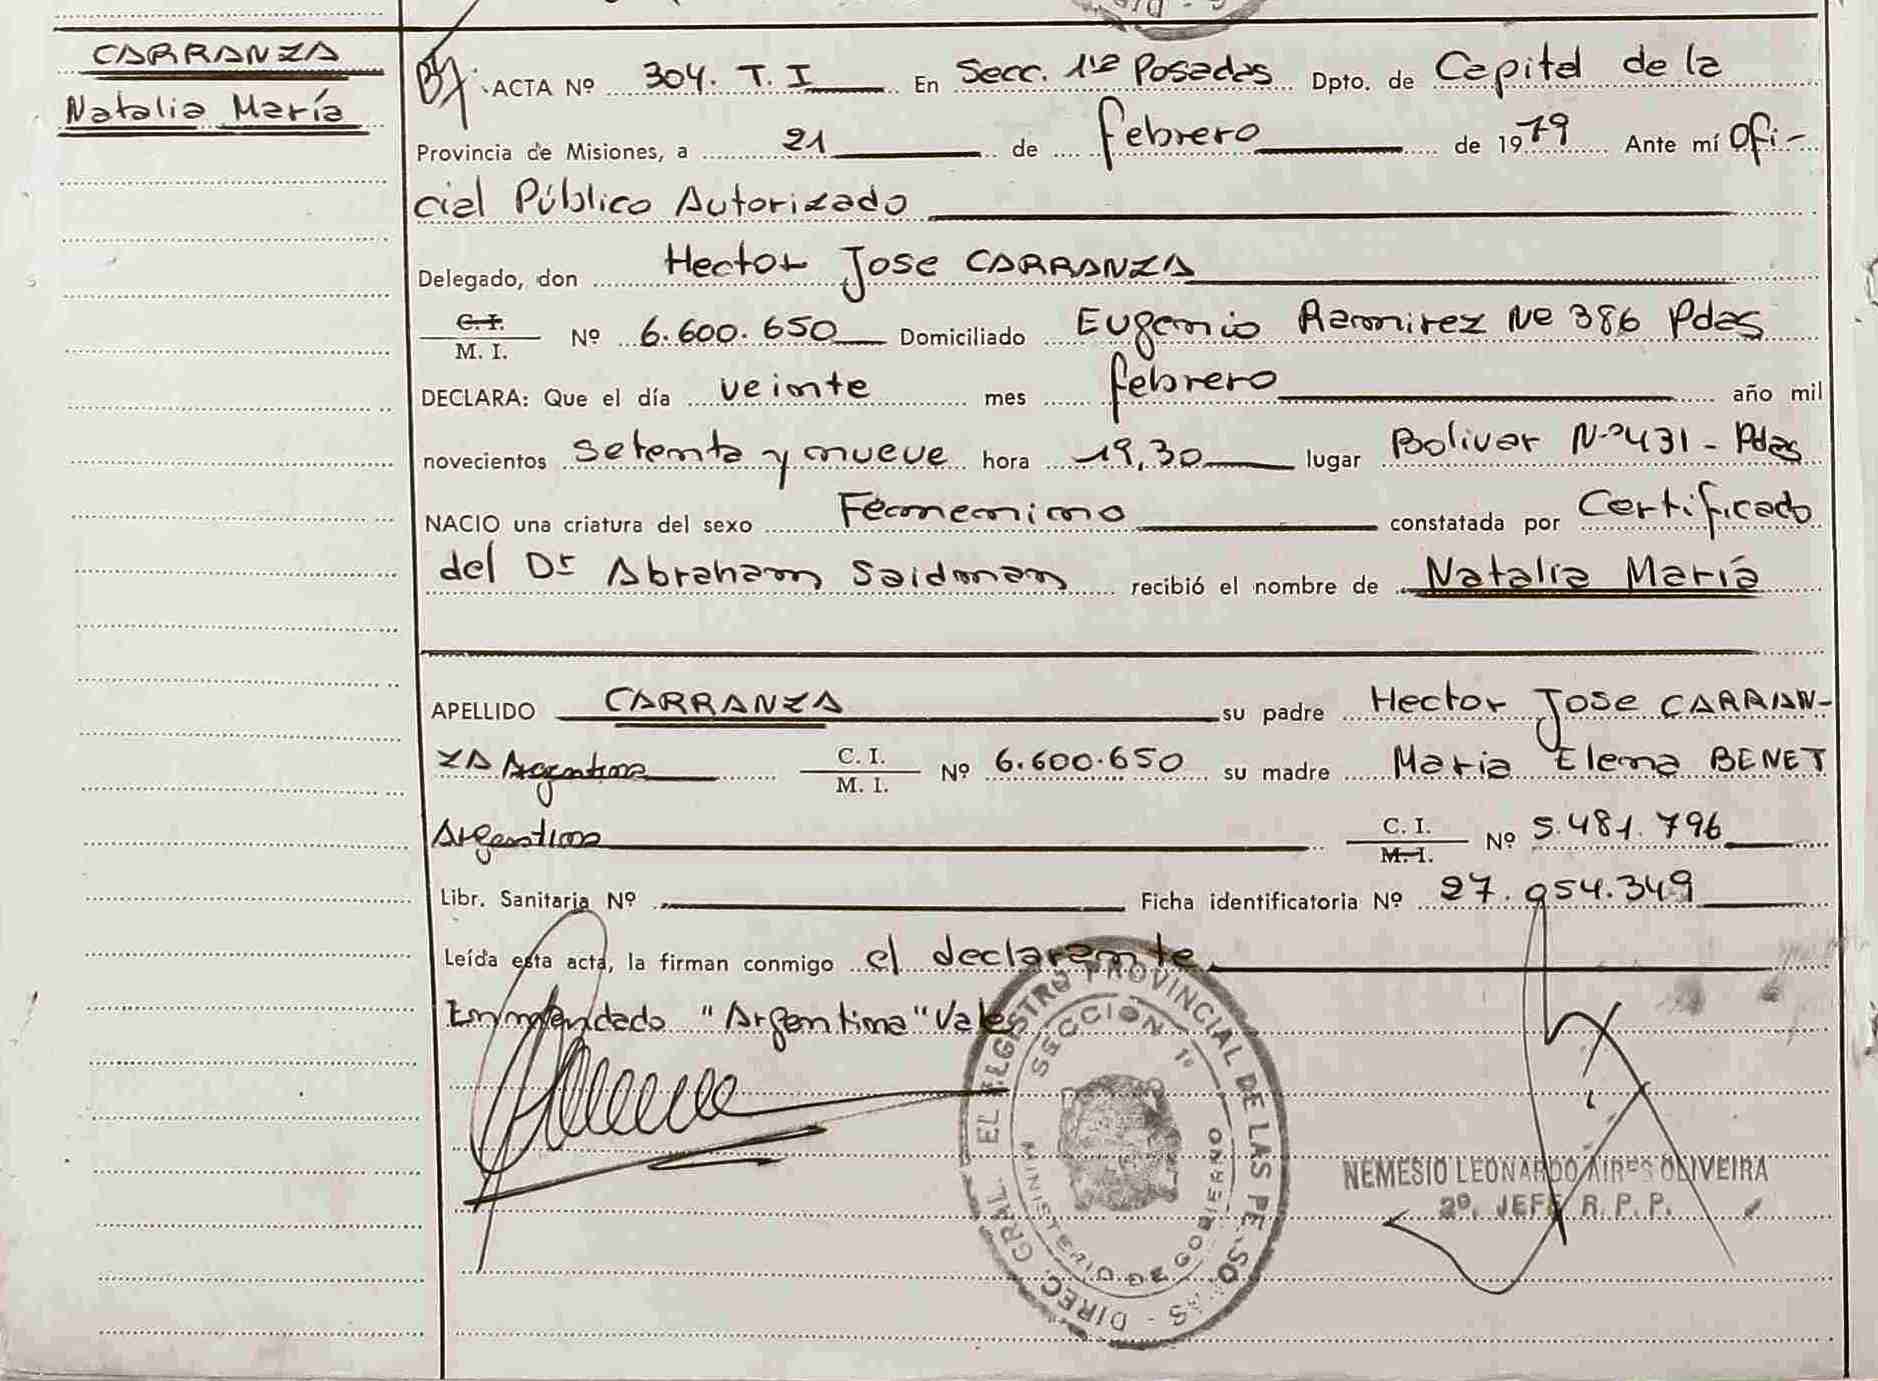 CARRANZA
Natalia María
ACTA Nº 304. T. I En Secc. 1ra Posadas Dpto. de Capital de la
Provincia de Misiones, a 21 de febrero de 1979 Ante mí Ofi-
cial Público Autorizado
Delegado, don Hector Jose CARRANZA
C. I.
M. I. Nº 6.600.650 Domiciliado Eugenio Ramirez Nº 386 Pdas
DECLARA: Que el día veinte mes febrero año mil
novecientos setenta y nueve hora 19,30 lugar Bolivar Nº 431 - Pdas
NACIO una criatura del sexo Femenino constatada por Certificado
del Dr Abraham Saidman recibió el nombre de Natalia María
APELLIDO CARRANZA su padre Hector Jose CARRAN-
ZA Argentina C. I. M. I. Nº 6.600.650 su madre Maria Elena BENET
Argentina C. I. M. I. Nº 5.481.796
Libr. Sanitaria Nº Ficha identificatoria Nº 27.954.349
Leída esta acta, la firman conmigo el declarante
Enmendado "Argentina" Vale
DIREC. GRAL. EL REGISTRO PROVINCIAL DE LAS PERSONAS
SECCION 1ª
MINISTERIO DE GOBIERNO
NEMESIO LEONARDO AIRES OLIVEIRA
2º. JEFE R. P. P.